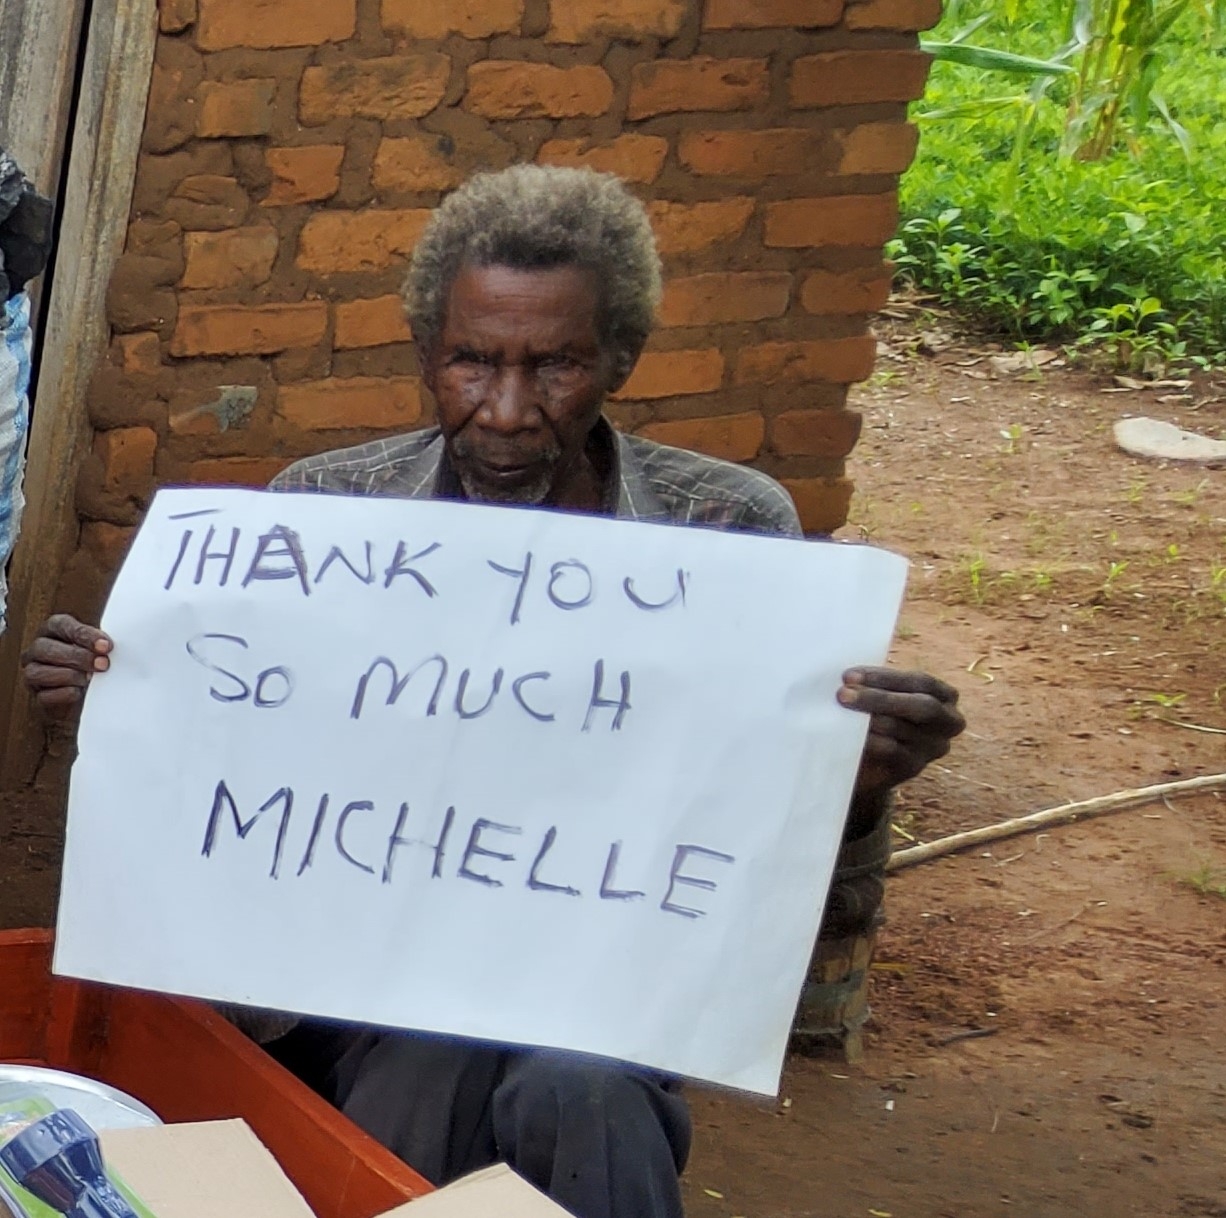 THANK YOU
SO MUCH
MICHELLE